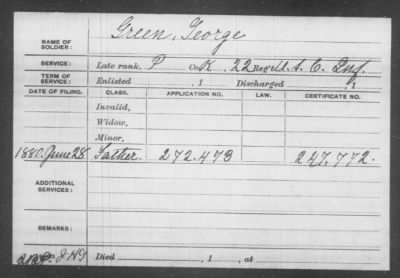 NAME OF SOLDIER: Green, George
SERVICE: Late rank, P Co. K, 22 Reg't U.S.C. Inf.
TERM OF SERVICE: Enlisted , 1 Discharged , 1
DATE OF FILING. CLASS. APPLICATION NO. LAW. CERTIFICATE NO.
Invalid,
Widow,
Minor,
1880. June 28 Father. 272.473 247,772.
ADDITIONAL SERVICES:
REMARKS:
Died , 1 , at